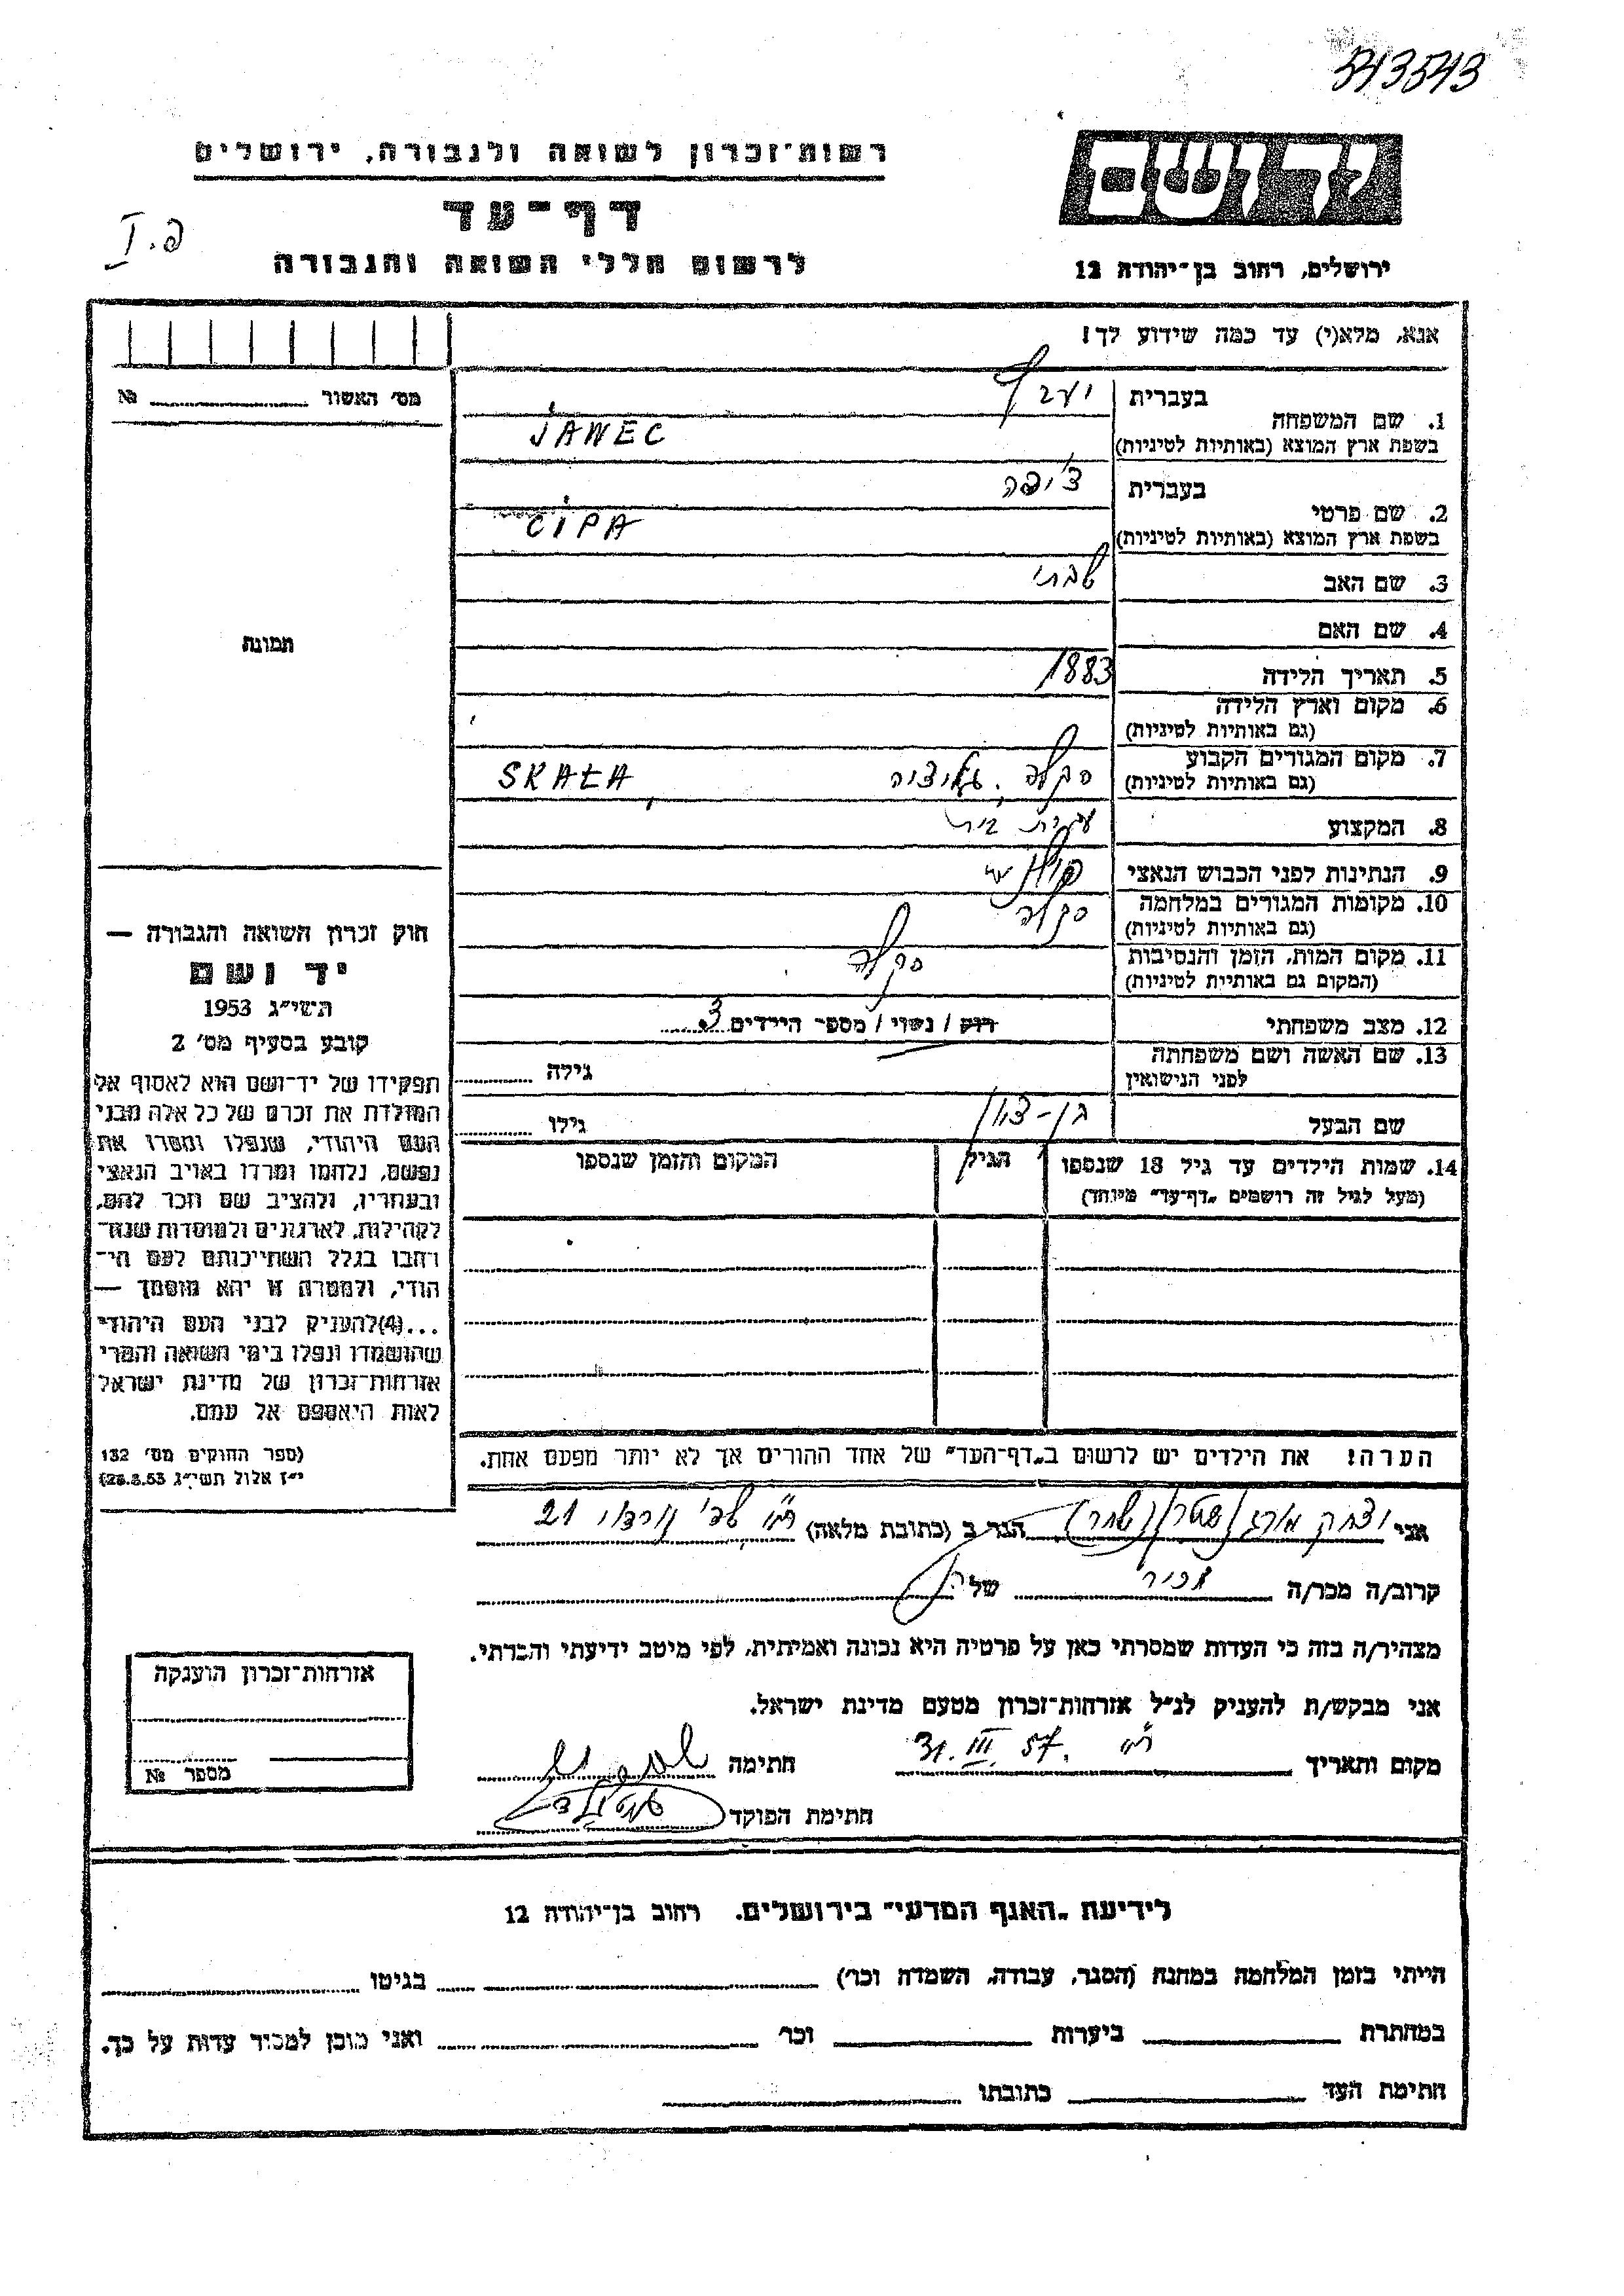 543543
רשות־זכרון לשואה ולגבורה, ירושלים
יד ושם
דף־עד
פ. I
לרשום חללי השואה והגבורה
ירושלים, רחוב בן־יהודה 12
אנא, מלא(י) עד כמה שידוע לך!
מס׳ האשור № 
בעברית
1. שם המשפחה
בשפת ארץ המוצא (באותיות לטיניות) JAWEC
בעברית ציפה
2. שם פרטי
בשפת ארץ המוצא (באותיות לטיניות) CIPA
3. שם האב שבתי
4. שם האם
תמונת
5. תאריך הלידה 1883
6. מקום וארץ הלידה
(גם באותיות לטיניות)
7. מקום המגורים הקבוע סקלה, גליציה SKAŁA
(גם באותיות לטיניות)
8. המקצוע עקרת בית
9. הנתינות לפני הכבוש הנאצי
10. מקומות המגורים במלחמה סקלה
(גם באותיות לטיניות)
11. מקום המות, הזמן והנסיבות סקלה
(המקום גם באותיית לטיניות)
12. מצב משפחתי רוק / נשוי / מספר הילדים 3
13. שם האשה ושם משפחתה גילה
לפני הנישואין
שם הבעל בן-ציון גילו
14. שמות הילדים עד גיל 18 שנספו הגיל המקום והזמן שנספו
(מעל לגיל זה רושמים „דף־עד״ מיוחד)
חוק זכרון השואה והגבורה —
יד ושם
תשי״ג 1953
קובע בסעיף מס׳ 2
תפקידו של יד־ושם הוא לאסוף אל
המולדת את זכרם של כל אלה מבני
העם היהודי, שנפלו ומסרו את
נפשם, נלחמו ומרדו באויב הנאצי
ובעוזריו, ולהציב שם וזכר להם,
לקהילות, לארגונים ולמוסדות שנח־
רבו בגלל השתייכותם לעם הי־
הודי, ולמטרה זו יהא מוסמך —
...(4)להעניק לבני העם היהודי
שהושמדו ונפלו בימי השואה והמרי
אזרחות־זכרון של מדינת ישראל
לאות היאספם אל עמם.
(ספר החוקים מס׳ 132
י״ז אלול תשי״ג 28.8.53)
הערה! את הילדים יש לרשום ב„דף־העד״ של אחד ההורים אך לא יותר מפעם אחת.
אני יצחק הגר ב (כתובת מלאה) 21
קרוב/ה מכר/ה מכיר של
מצהיר/ה בזה כי העדות שמסרתי כאן על פרטיה היא נכונה ואמיתית, לפי מיטב ידיעתי והכרתי.
אני מבקש/ת להעניק לנ״ל אזרחות־זכרון מטעם מדינת ישראל.
מקום ותאריך 31. III. 57 חתימה
חתימת הפוקד
אזרחות־זכרון הוענקה
מספר №
לידיעת „האגף המדעי״ בירושלים. רחוב בן־יהודה 12
הייתי בזמן המלחמה במחנה (הסגר, עבודה, השמדה וכר׳) בגיטו
במחתרת ביערות וכר׳ ואני מוכן למסיר עדות על כך.
חתימת העד כתובתו